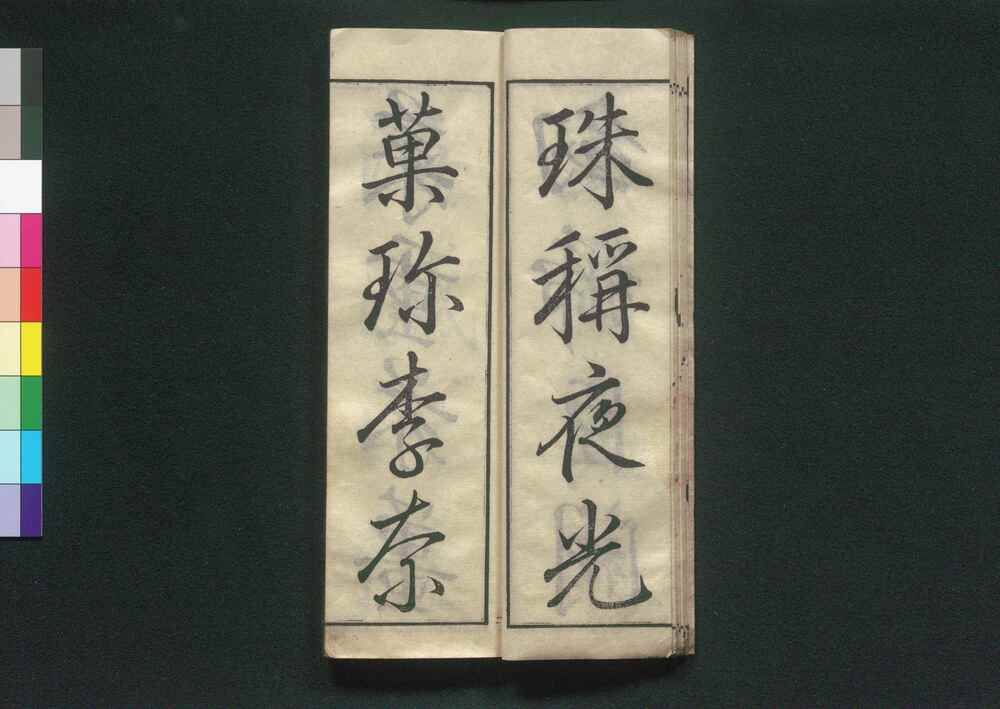 珠稱夜光
菓珎李柰